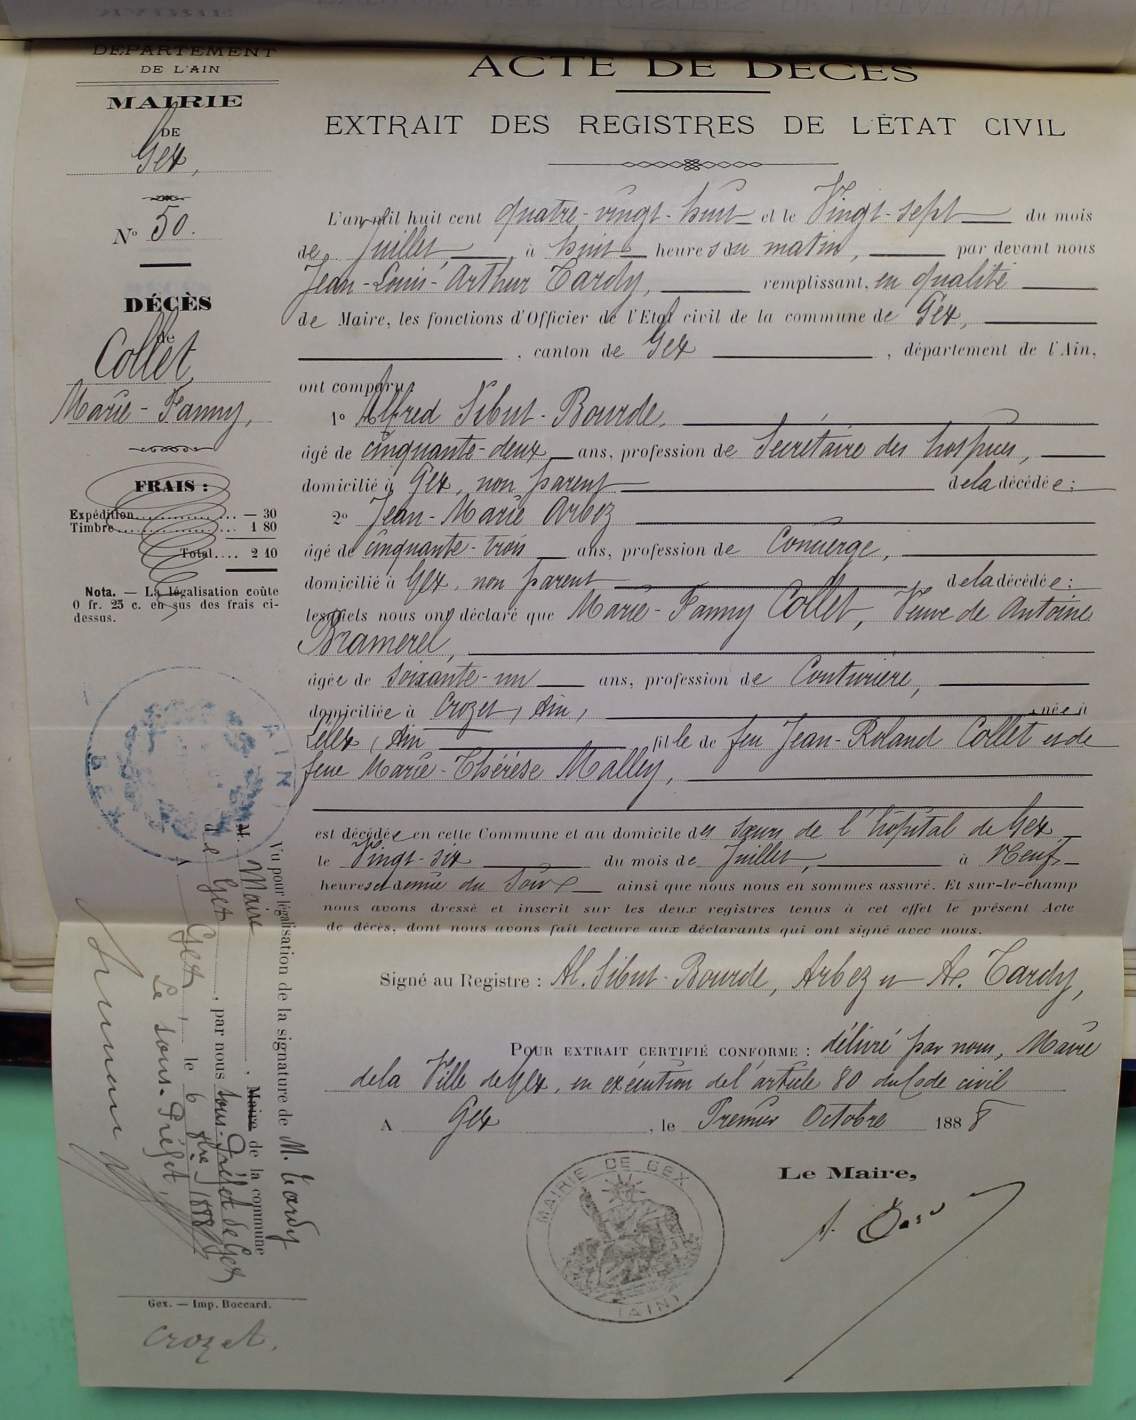 DÉPARTEMENT
DE L'AIN
MAIRIE
DE
Gex,
N° 50.
DÉCÈS
de
Collet,
Marie-Fanny,
FRAIS :
Expédition — 30
Timbre 1 80
Total.... 2 10
Nota. — La légalisation coûte
0 fr. 25 c. en sus des frais ci-
dessus.
ACTE DE DÉCÈS
EXTRAIT DES REGISTRES DE L'ÉTAT CIVIL
L'an mil huit cent quatre-vingt-huit et le Vingt-sept du mois
de Juillet, à huit heures du matin, par devant nous
Jean-Louis-Arthur Tardy, remplissant, en qualité
de Maire, les fonctions d'Officier de l'Etat civil de la commune de Gex,
, canton de Gex , département de l'Ain,
ont comparu:
1° Alfred Sibut-Bourde,
âgé de cinquante-deux ans, profession de Secrétaire des hospices,
domicilié à Gex, non parent de la décédée;
2° Jean-Marie Arbez
âgé de cinquante-trois ans, profession de Concierge,
domicilié à Gex, non parent de la décédée:
lesquels nous ont déclaré que Marie-Fanny Collet, Veuve de Antoine
Bramerel,
âgée de soixante-un ans, profession de Couturière,
domiciliée à Crozet, Ain, née à
Lélex, Ain fille de feu Jean-Roland Collet et de
feue Marie-Thérèse Malley,
est décédée en cette Commune et au domicile des sœurs de l'hôpital de Gex
le Vingt-six du mois de Juillet, à Neuf
heures et demie du Soir ainsi que nous nous en sommes assuré. Et sur-le-champ
nous avons dressé et inscrit sur les deux registres tenus à cet effet le présent Acte
de décès, dont nous avons fait lecture aux déclarants qui ont signé avec nous.
Signé au Registre : Al. Sibut-Bourde, Arbez et Ar. Tardy,
POUR EXTRAIT CERTIFIÉ CONFORME : délivré par nous, Maire
de la Ville de Gex, en exécution de l'article 80 du Code civil
A Gex , le Premier Octobre 1888
Le Maire,
MAIRIE DE GEX
(AIN)
Vu pour légalisation de la signature de M. Tardy
M. Maire , Maire de la commune
de Gex , par nous Sous-Préfet de Gex
A Gex, le 6 8bre 1888
Le Sous-Préfet,
GEX
AIN
Gex. — Imp. Boccard.
Crozet.